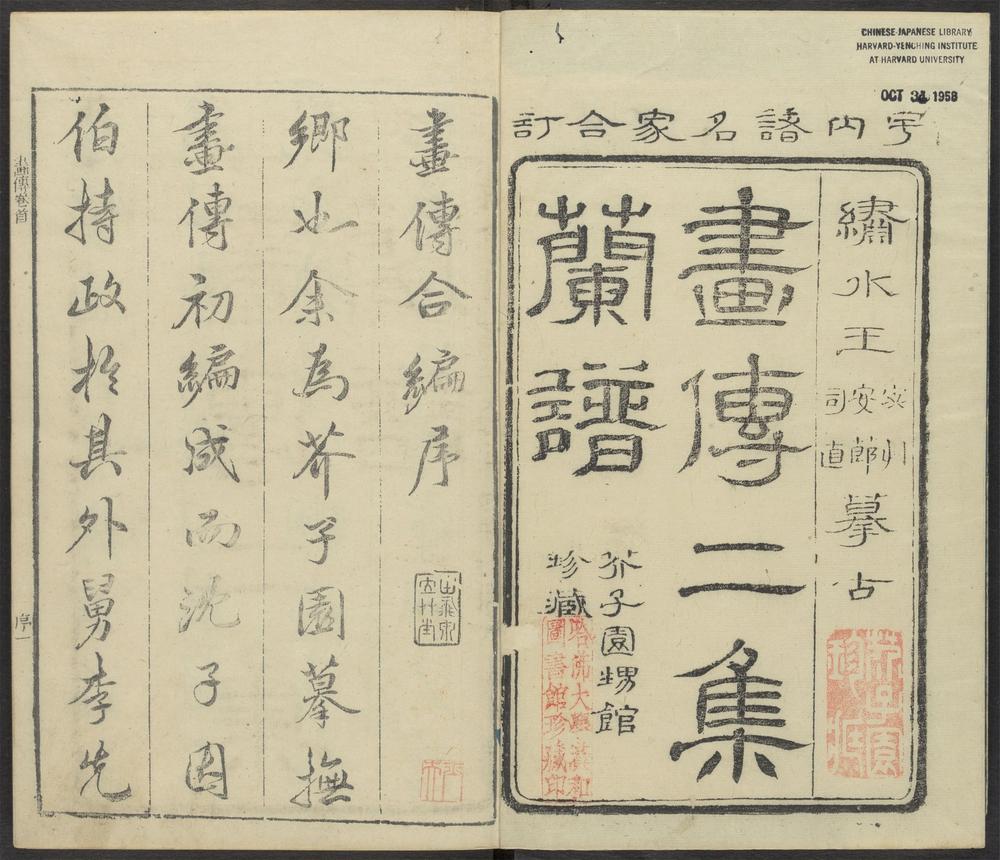 CHINESE-JAPANESE LIBRARY
HARVARD-YENCHING INSTITUTE
AT HARVARD UNIVERSITY
OCT 31 1958
宇內諸名家合訂
繡水王宓艸安節司直摹古
畫傳二集
蘭譜
芥子園甥館
珍藏
哈佛大學漢和
圖書館珍藏印
畫傳合編序
鄉也余為芥子園摹撫
畫傳初編成而沈子因
伯持政於其外舅李先
畫傳卷首
序一